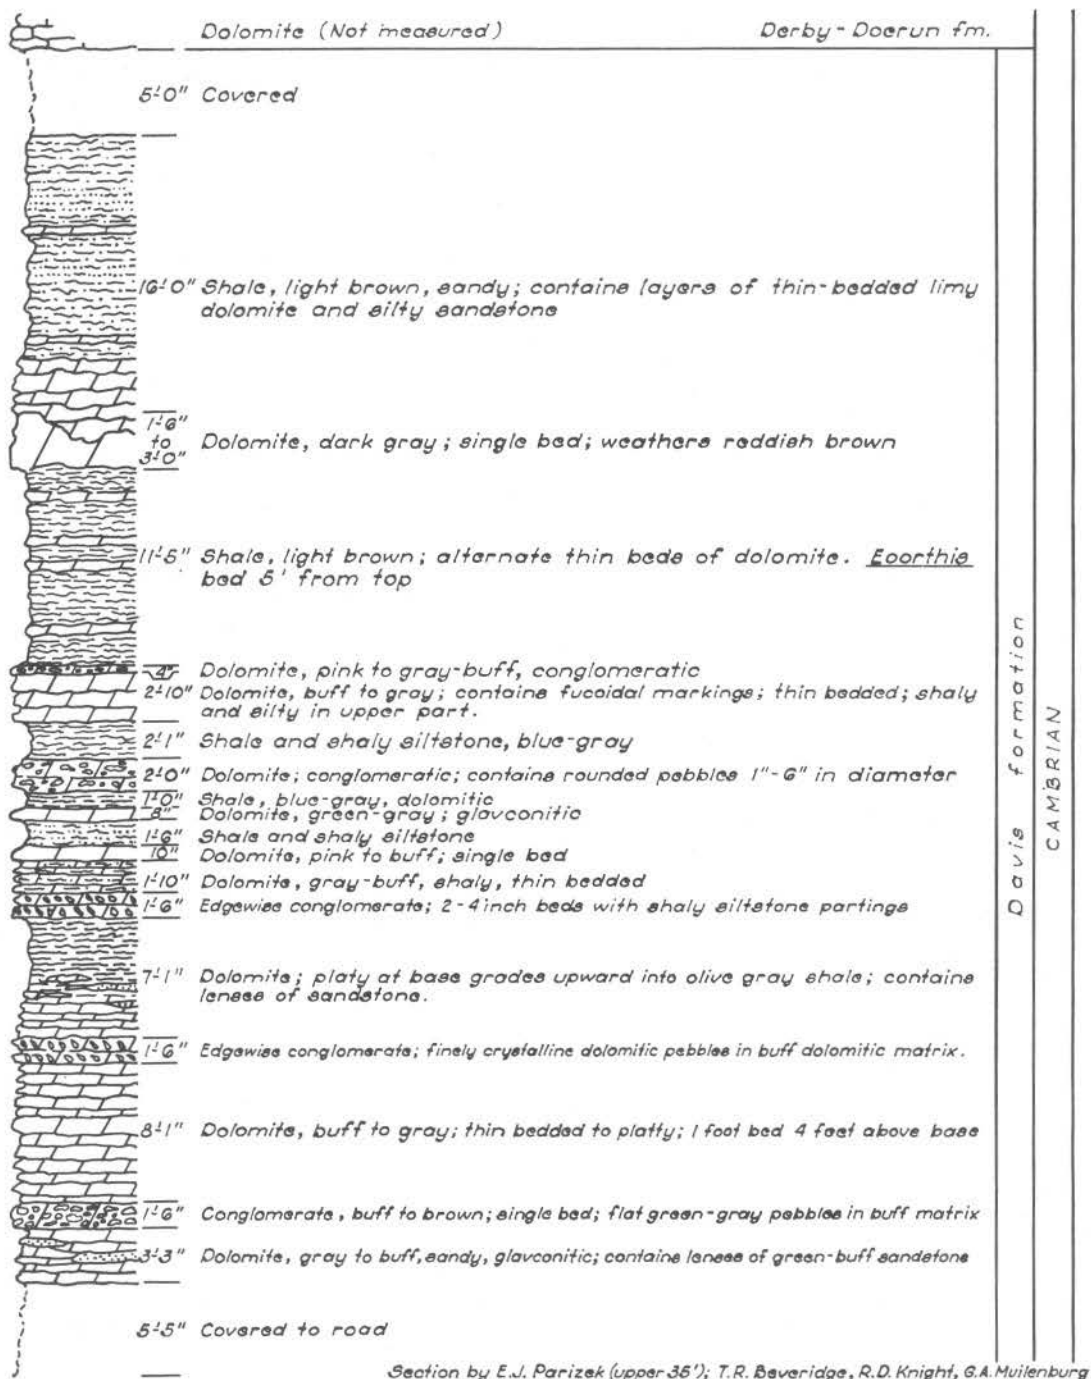 Dolomite (Not measured) Derby-Doerun fm.
5'-0" Covered
16'-0" Shale, light brown, sandy; contains layers of thin-bedded limy
dolomite and silty sandstone
1'-6"
to
3'-0"
Dolomite, dark gray; single bed; weathers reddish brown
11'-5" Shale, light brown; alternate thin beds of dolomite. Eoorthis
bed 5' from top
4" Dolomite, pink to gray-buff, conglomeratic
2'-10" Dolomite, buff to gray; contains fucoidal markings; thin bedded; shaly
and silty in upper part.
2'-1" Shale and shaly siltstone, blue-gray
2'-0" Dolomite; conglomeratic; contains rounded pebbles 1"-6" in diameter
1'-0" Shale, blue-gray, dolomitic
8" Dolomite, green-gray; glavconitic
1'-6" Shale and shaly siltstone
10" Dolomite, pink to buff; single bed
1'-10" Dolomite, gray-buff, shaly, thin bedded
1'-6" Edgewise conglomerate; 2-4 inch beds with shaly siltstone partings
7'-1" Dolomite; platy at base grades upward into olive gray shale; contains
lenses of sandstone.
1'-6" Edgewise conglomerate; finely crystalline dolomitic pebbles in buff dolomitic matrix.
8'-1" Dolomite, buff to gray; thin bedded to platty; 1 foot bed 4 feet above base
1'-6" Conglomerate, buff to brown; single bed; flat green-gray pebbles in buff matrix
3'-3" Dolomite, gray to buff, sandy, glavconitic; contains lenses of green-buff sandstone
5'-5" Covered to road
Davis formation
CAMBRIAN
Section by E.J. Parizek (upper 35'); T.R. Beveridge, R.D. Knight, G.A. Muilenburg